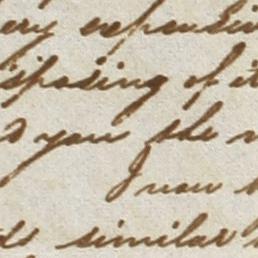 ery expensi
sposing of it
d your the
I now
ds similar